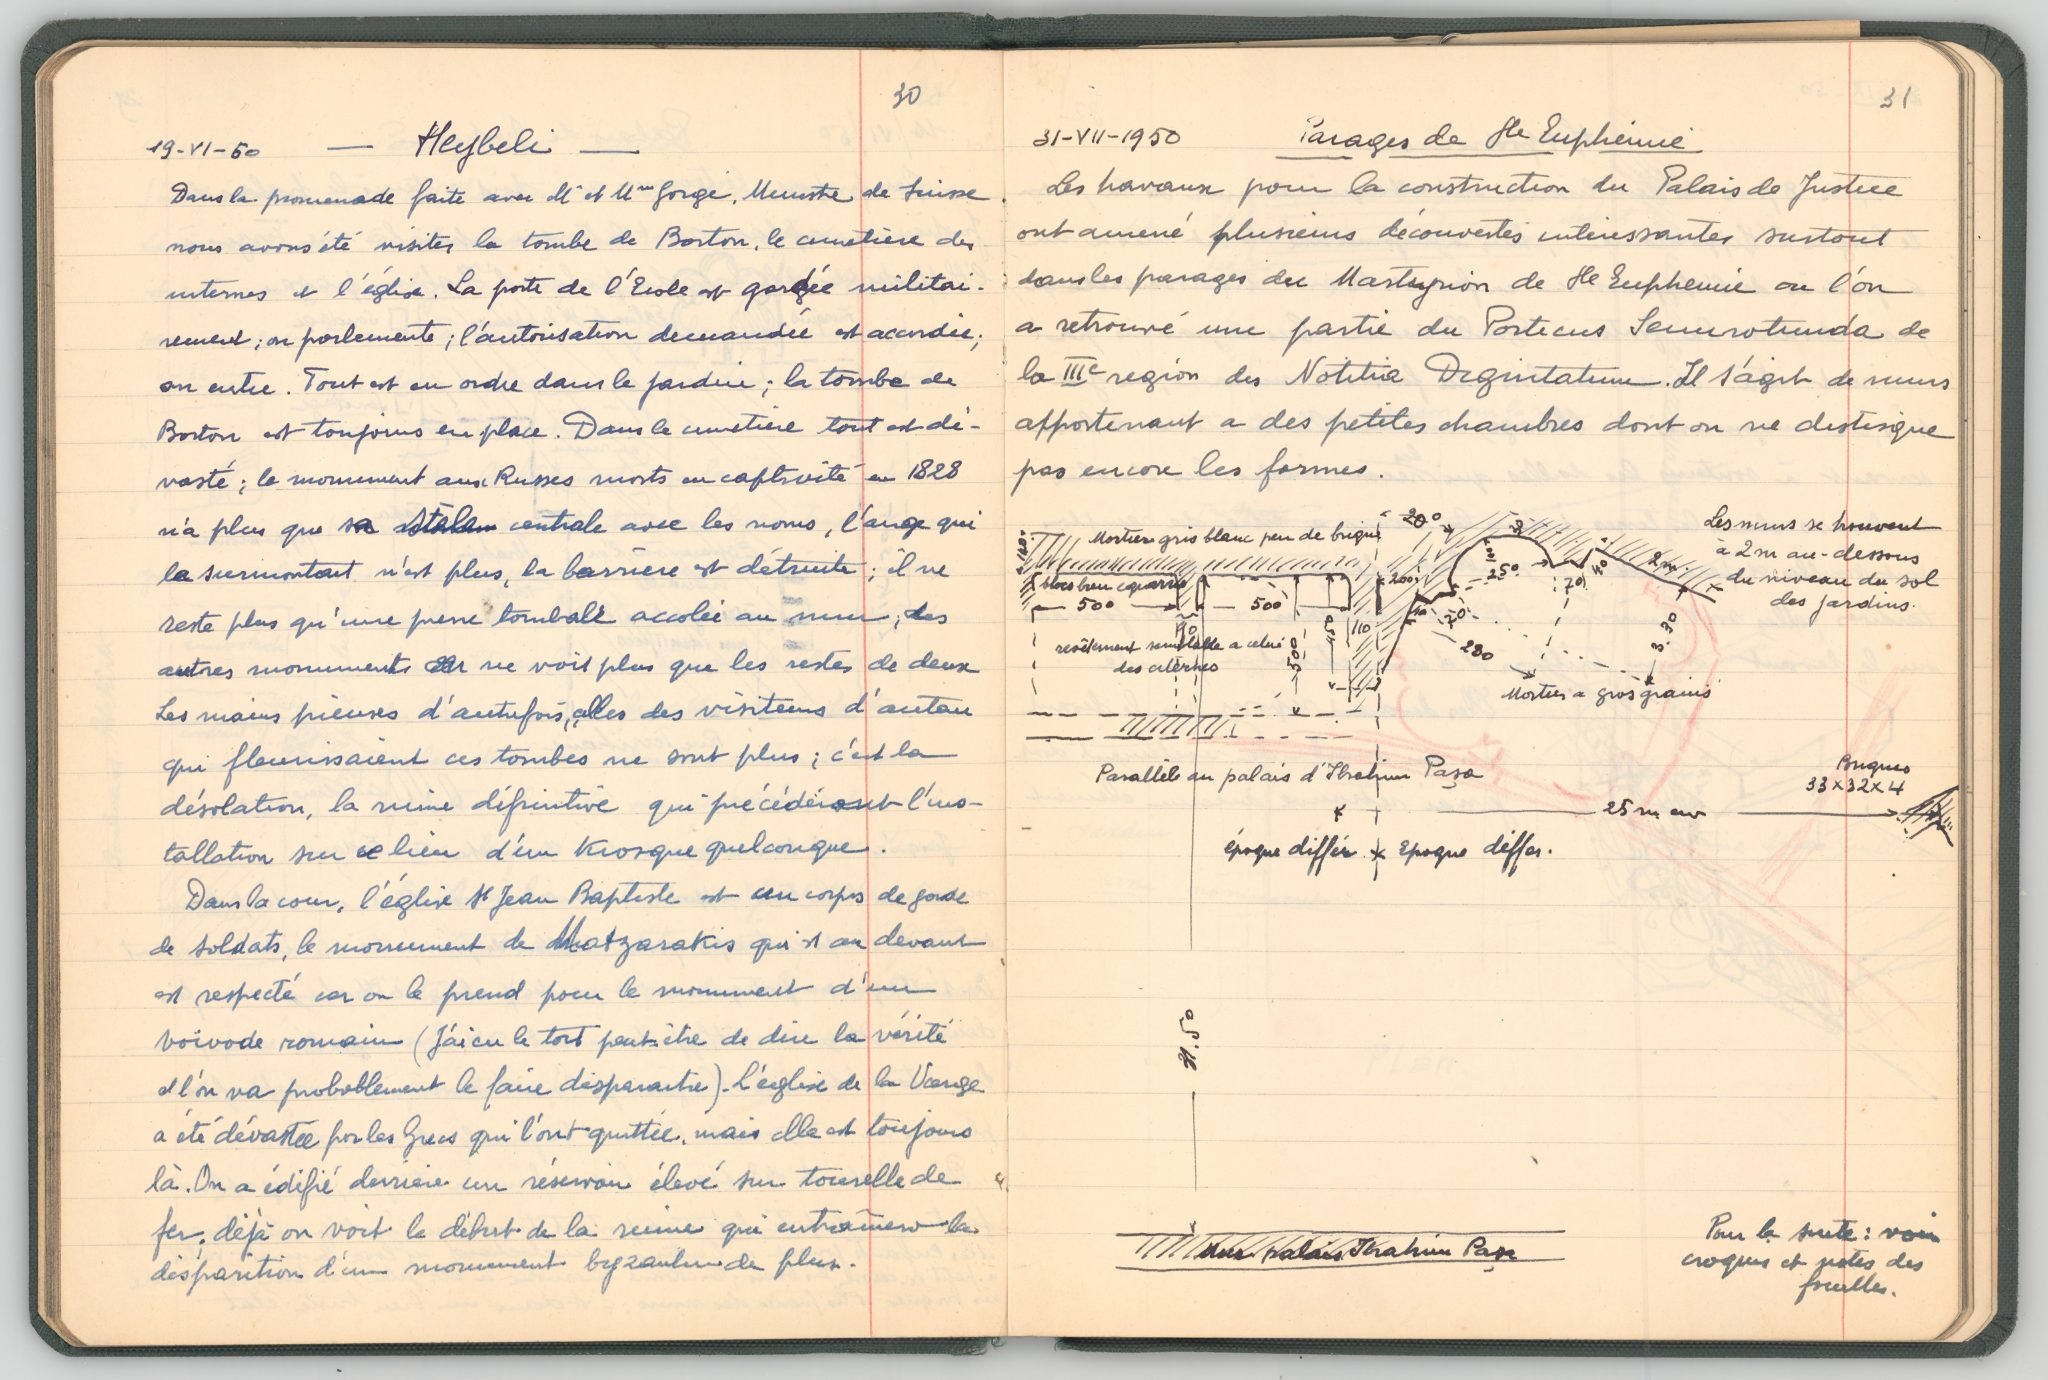 30
19-VI-50 — Heybeli —
Dans la promenade faite avec Mr et Mme Gorgé, Ministre de Suisse
nous avons été visiter la tombe de Barton, le cimetière des
internes et l'église. La porte de l'École est gardée militai-
rement; on parlemente; l'autorisation demandée est accordée;
on entre. Tout est en ordre dans le jardin; la tombe de
Barton est toujours en place. Dans le cimetière tout est dé-
vasté; le monument aux Russes morts en captivité en 1828
n'a plus que sa centrale avec les noms, l'ange qui
la surmontait n'est plus, la barrière est détruite; il ne
reste plus qu'une pierre tombale accolée au mur, des
autres monuments on ne voit plus que les restes de deux
Les mains pieuses d'autrefois, celles des visiteurs d'antan
qui fleurissaient ces tombes ne sont plus; c'est la
désolation, la ruine définitive qui précédéront l'ins-
tallation sur ce lieu d'un kiosque quelconque.
Dans la cour, l'église St Jean Baptiste est un corps de garde
de soldats, le monument de Matzarakis qui est au devant
est respecté car on le prend pour le monument d'un
voivode romain (J'ai eu le tort peut-être de dire la vérité
et l'on va probablement le faire disparaitre). L'église de la Vierge
a été dévastée par les Grecs qui l'ont quittée, mais elle est toujours
là. On a édifié derrière un réservoir élevé sur tourelle de
fer, déjà on voit le début de la ruine qui entrainera la
disparition d'un monument byzantin de plus.
31
31-VII-1950 Parages de Ste Euphémie
Les travaux pour la construction du Palais de Justice
ont amené plusieurs découvertes intéressantes surtout
dans les parages du Martyrion de Ste Euphemie ou l'on
a retrouvé une partie du Porticus Semirotunda de
la IIIe région des Notitia Dignitatum. Il s'agit de murs
appartenant a des petites chambres dont on ne distingue
pas encore les formes.
Mortier gris blanc peu de brique
blocs bien equarris
500
500
90
500
110
200
200
250
70
70
280
2m.
3.30
revêtement semblable a celui
des citernes
Mortier a gros grains
Les murs se trouvent
à 2m au-dessous
du niveau du sol
des jardins.
Parallèle au palais d'Ibrahim Paşa
Briques
33x32x4
25 m env
époque différ. x Epoque différ.
31.50
Mur palais Ibrahim Paşa
Pour la suite: voir
croquis et notes des
fouilles.